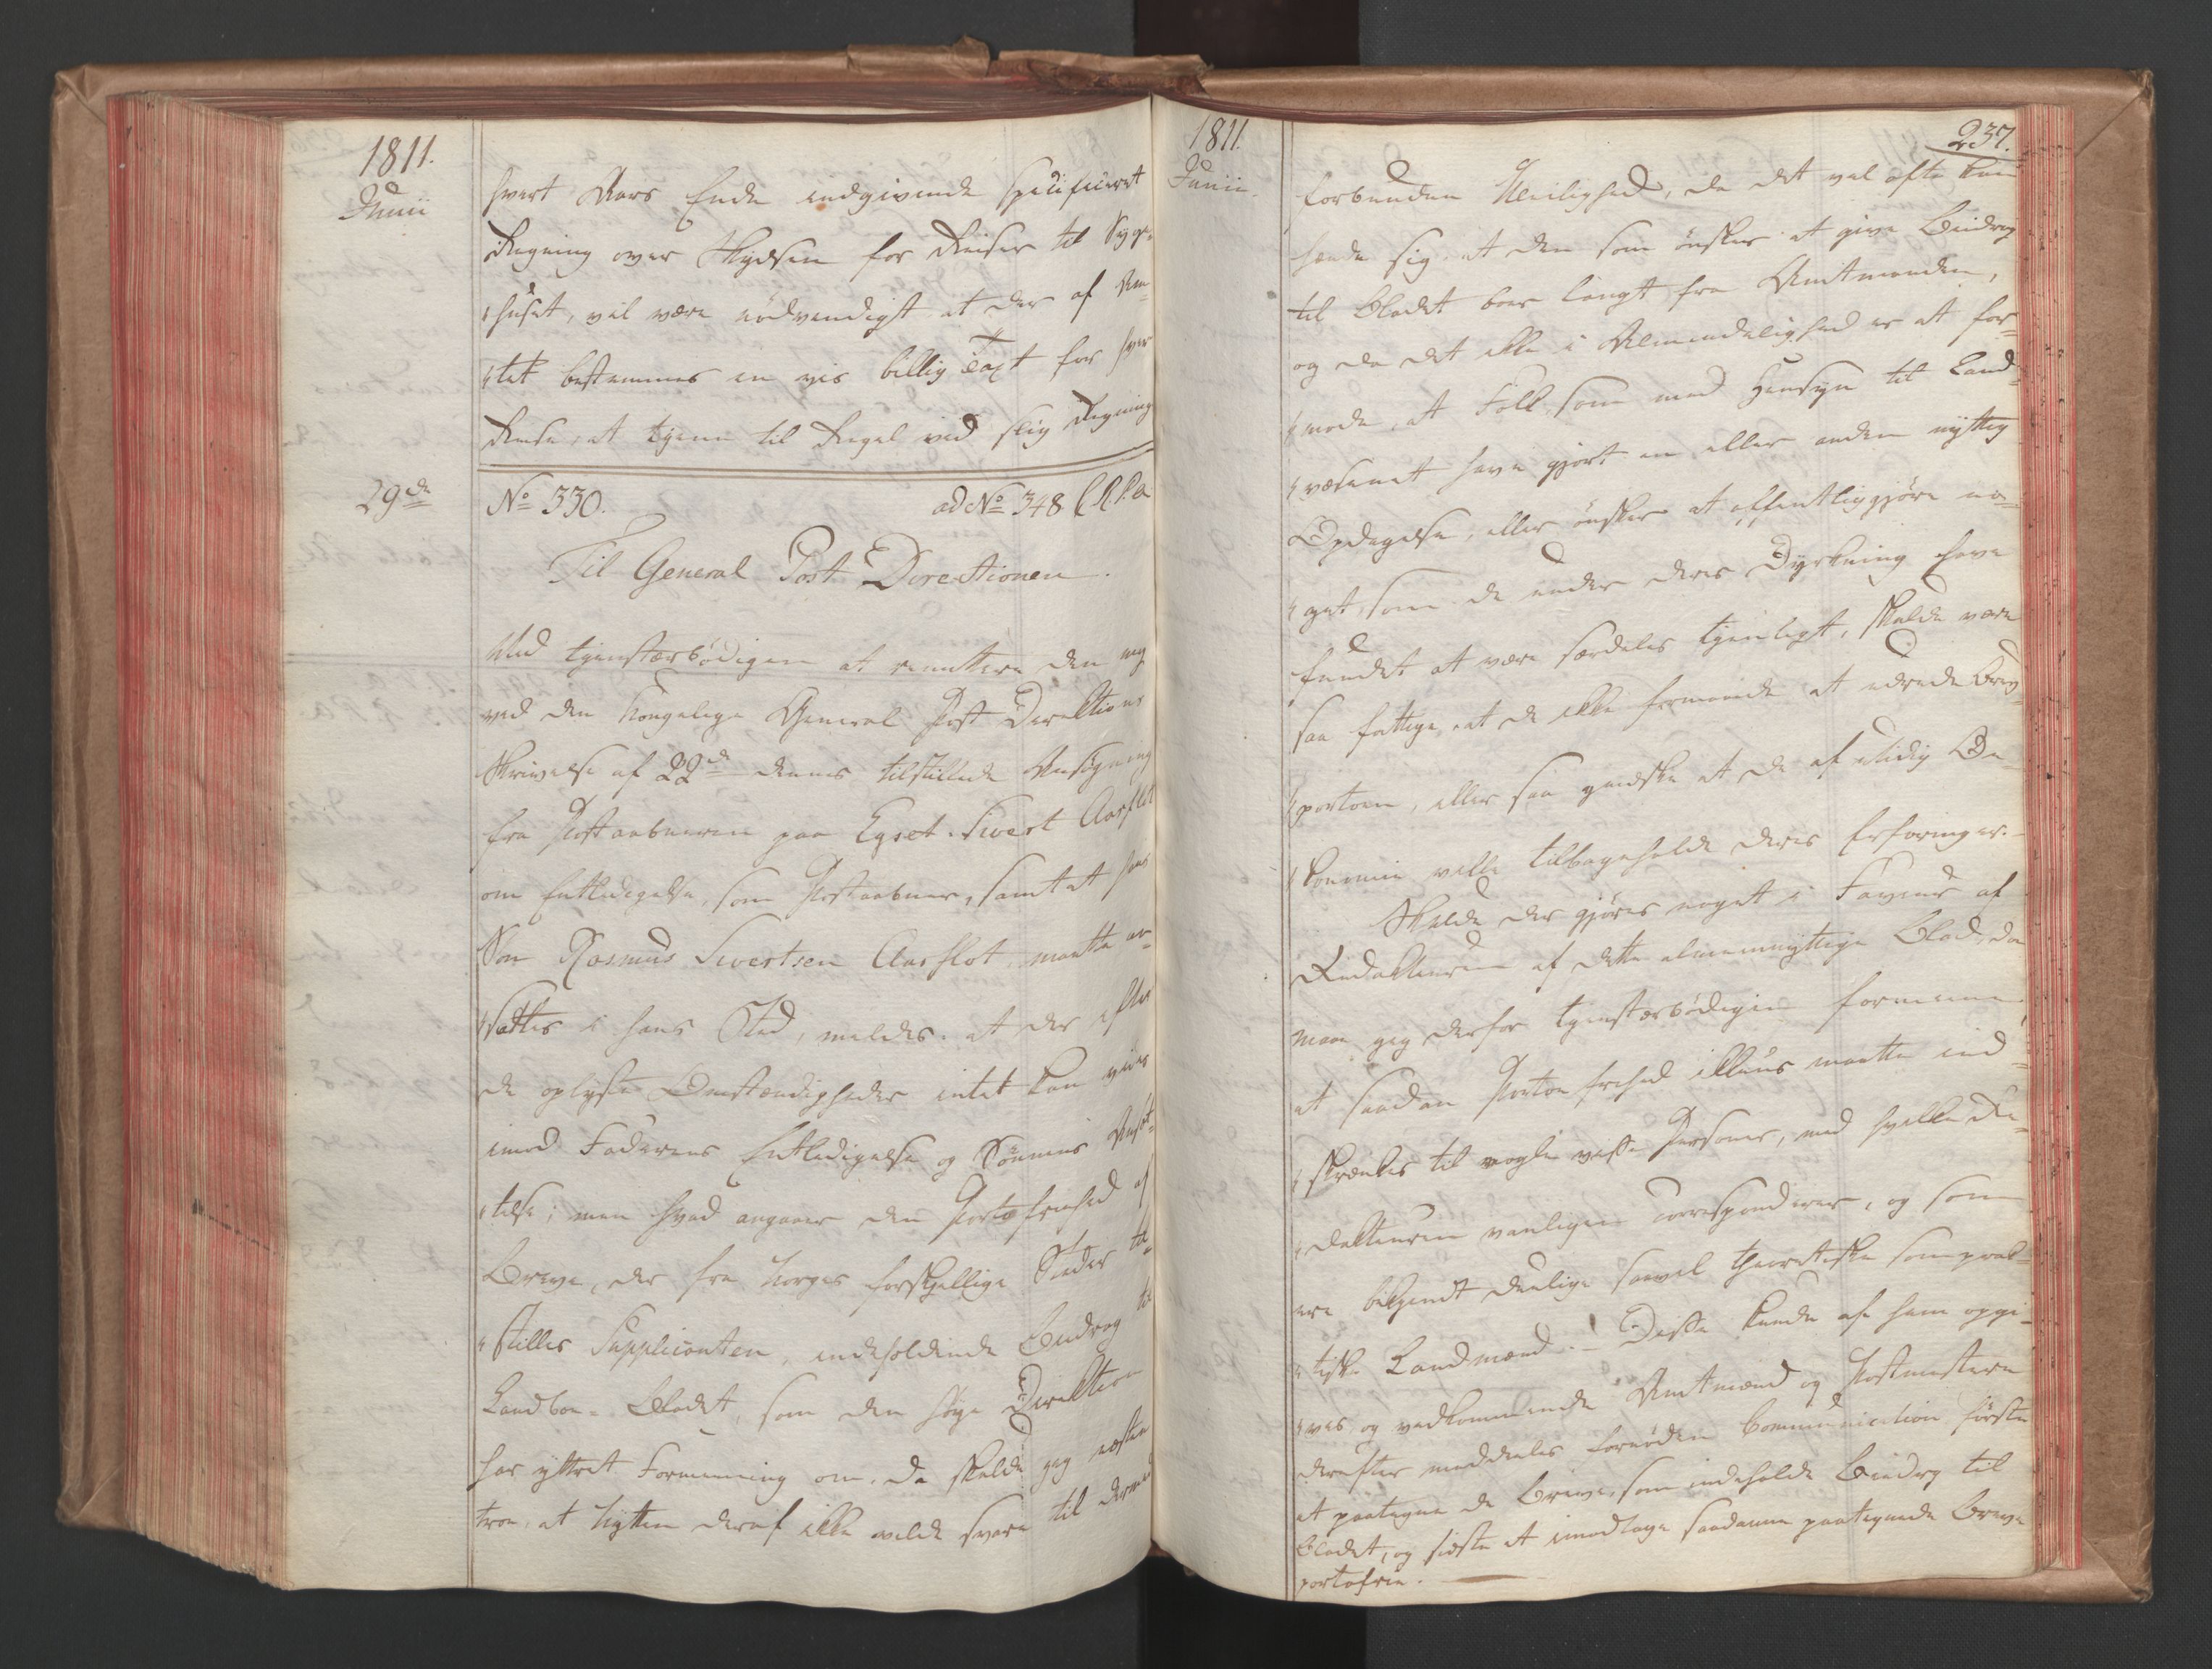 1811.
Junii
hvert Aars Ende indgivende specificeret
Regning over Skydsen for Reiser til Syge-
huset, vil være nødvendigt at der af Am-
tet bestemmes en vis billig Taxt for hver
Reise, at tjene til Regel ved slig Regning
29de
No 330.
ad No 348
Til General Post Directionen.
Med tjenstærbødigen at remittere den mig
ved den Kongelige General Post Direktions
Skrivelse af 22de dennes tilstillede Ansøgning
fra Postaabneren paa Egset Sivert Aarflot
om Entledigelse som Postaabner, samt at hans
Søn Rasmus Sivertsen Aarflot maatte an-
sættes i hans Sted, meldes: at der efter
de oplyste Omstændigheder intet kan være
imod Faderens Entledigelse og Sønnens Ansæt-
telse; men hvad angaaer den Portofrihed af
Breve, der fra Norges forskjellige Steder til-
stilles Supplicanten, indeholdende Bidrag til
Landboe-Bladet, som den høye Direktion
har yttret Formening om, da skulde jeg næsten
troe, at Nytten deraf ikke vilde svare til dermed
1811.
Junii
237.
forbunden Uleilighed, da det vel ofte kan
hænde sig at den som ønsker at give Bidrag
til Bladet boer langt fra Amtmanden,
og da det ikke i Almindelighed er at for-
mode, at Folk som med Hensyn til Land-
væsenet have gjort en eller anden nyttig
Opdagelse, eller ønsker at offentliggjøre no-
get, som de under deres Dyrkning have
fundet at være særdeles tjenligt, skulde være
saa fattige, at de ikke formaaede at udrede Brev-
portoen, eller saa gjerdske at de af utidig Oe-
konomie ville tilbageholde deres Erfaringer.
Skulde der gjøres noget i Faveur af
Redakteuren af dette almeennyttige Blad, da
maae jeg derfor tjenstærbødigen formeene,
at saadan Porto frihed alleene maatte ind-
skrænkes til nogle visse Personer, med hvilke Re-
dakteuren venligen correspondirer, og som
ere bekjendt duelige saavel theoretiske som prak-
tiske Landmænd. - Disse kunde af ham opgi-
ves og vedkommende Amtmænd og Postmestere
derefter meddeeles fornøden Communication, første
at paategne de Breve, som indeholde Bidrag til
Bladet, og sidste at imodtage saadanne paategnede Breve
portofrie.